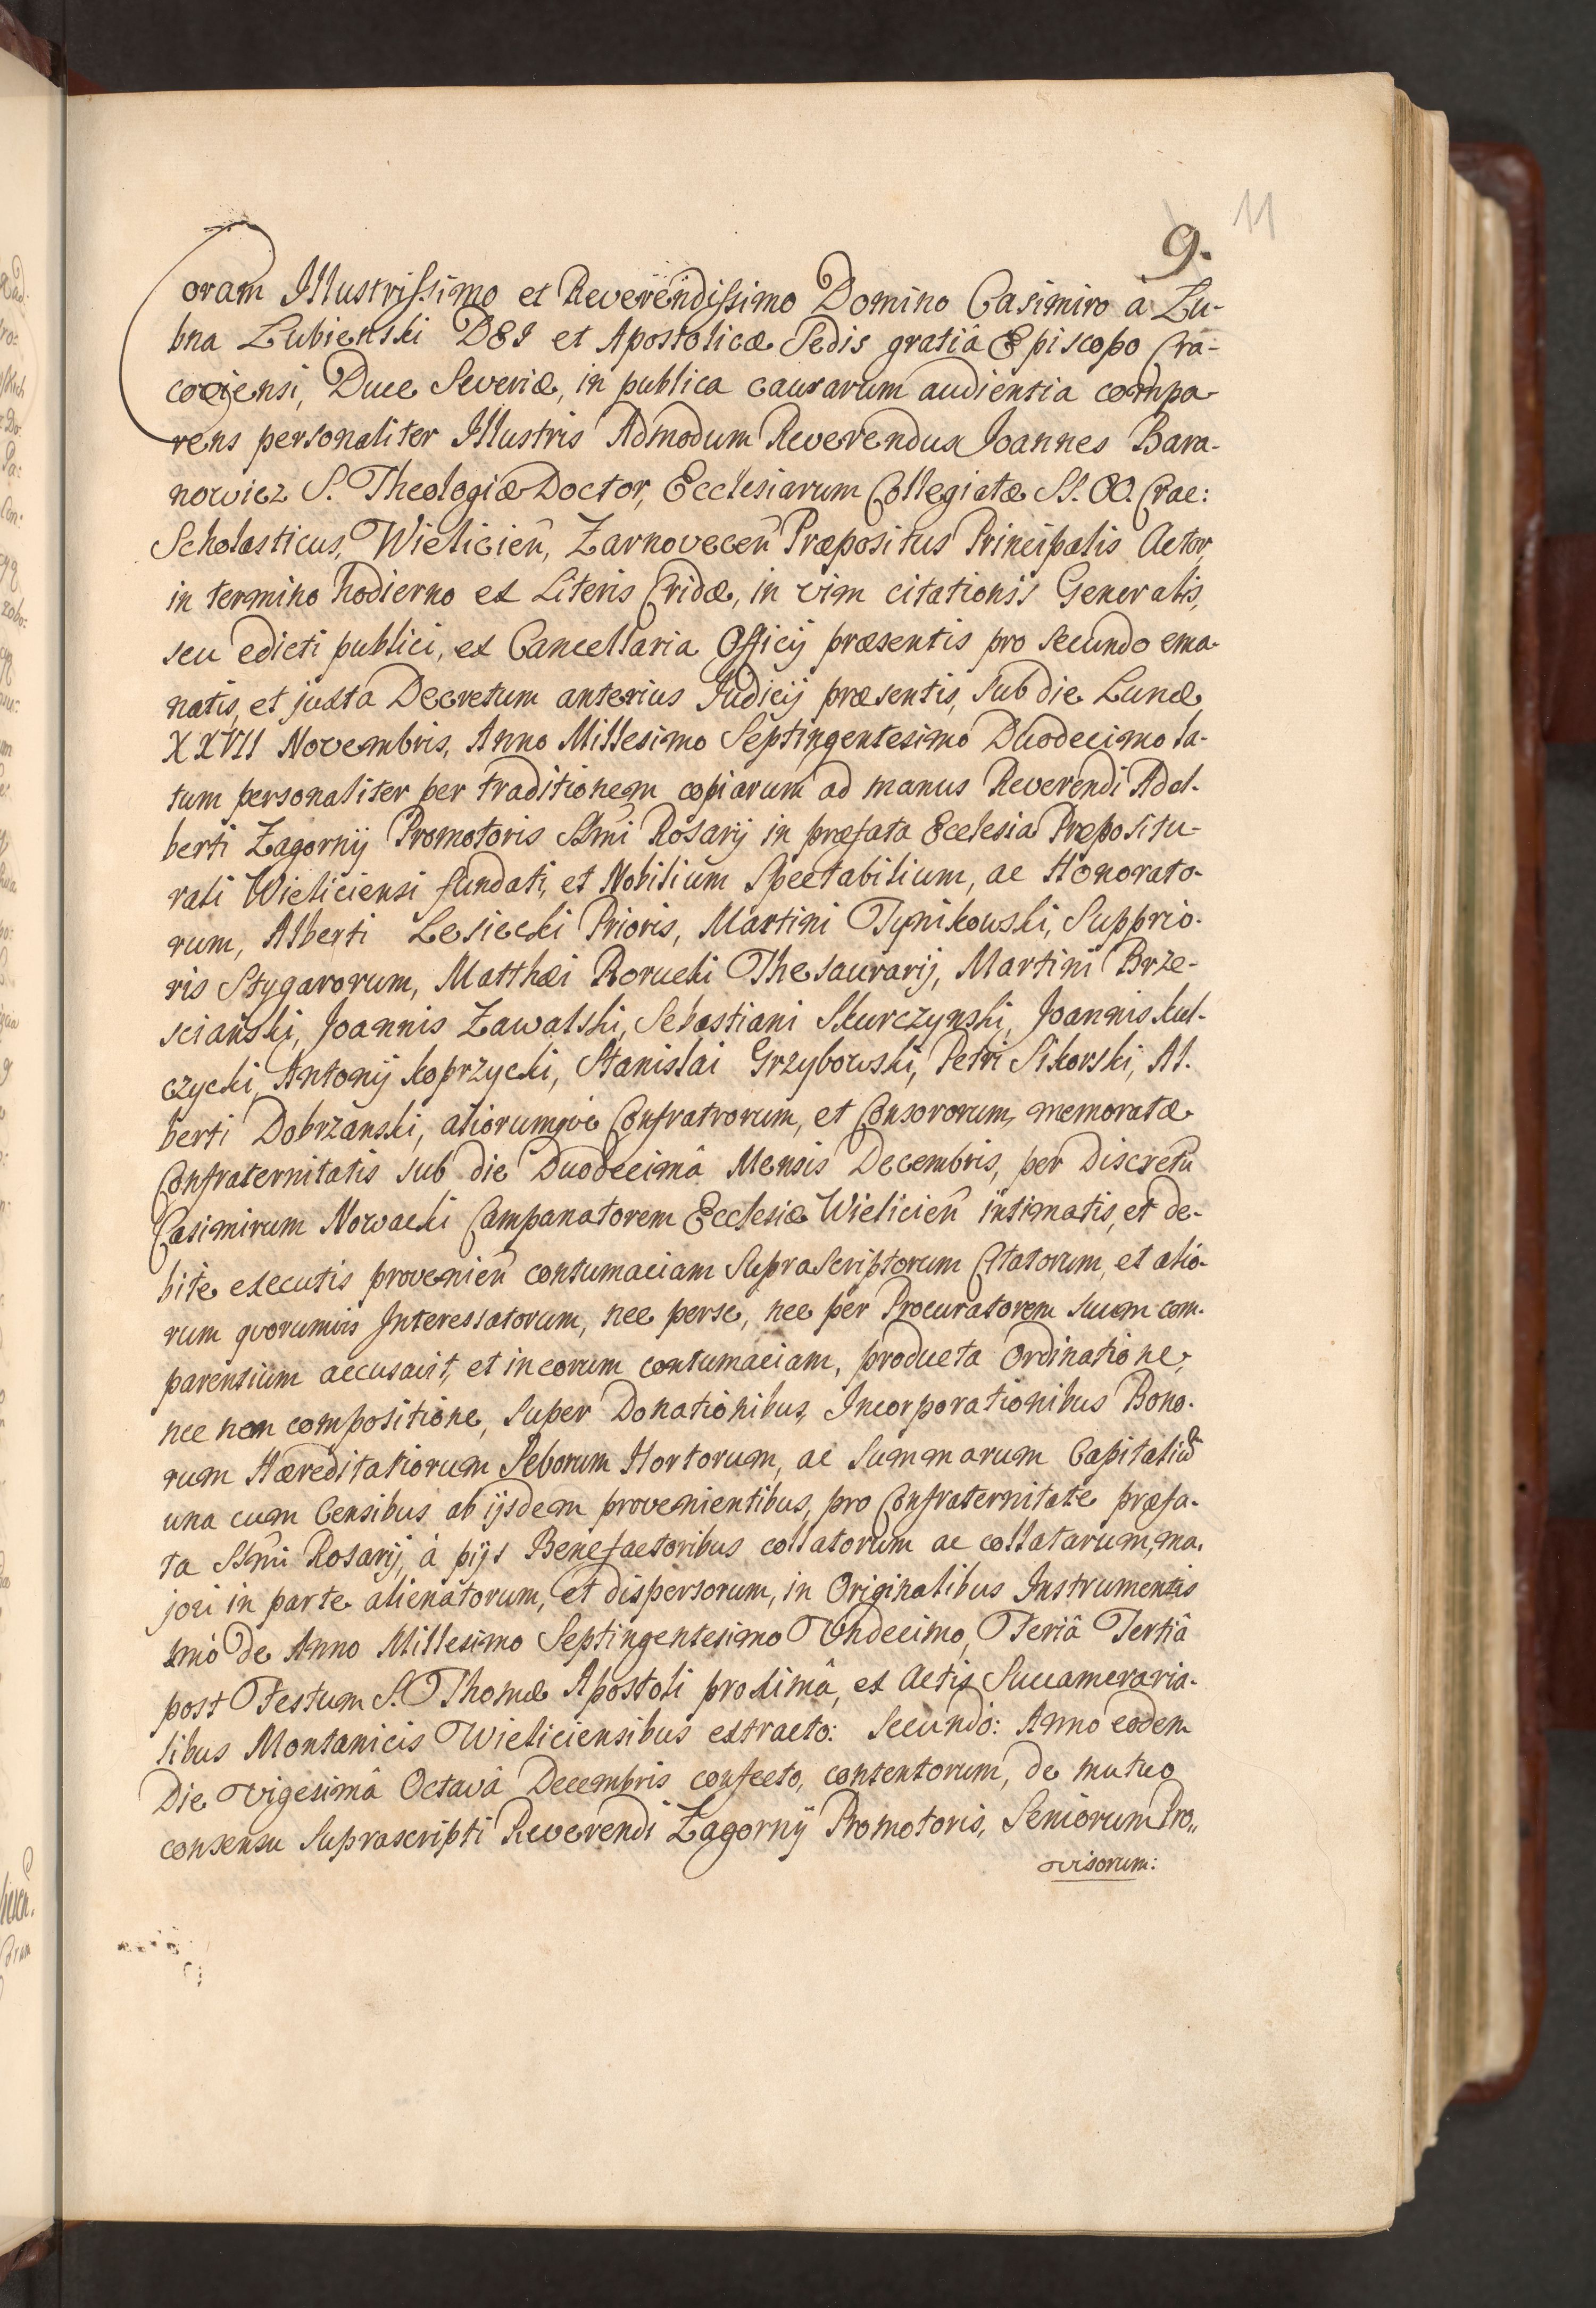 11
9.
Coram Illustrissimo et Reverendissimo Domino Casimiro à Lu-
bna Lubienski DEI et Apostolicæ Sedis gratiâ Episcopo Cra-
coviensi, Duce Severiæ, in publica causarum audientia compa-
rens personaliter Illustris Admodum Reverendus Joannes Bara-
nowicz S. Theologiæ Doctor, Ecclesiarum Collegiatæ SS. OO. Crac:
Scholasticus, Wielicien̄, Zarnovecen̄ Præpositus Principalis Actor,
in termino hodierno ex Literis Cridæ, in vim citationis Generalis,
seu edicti publici, ex Cancellaria Officij præsentis pro secundo ema-
natis, et juxta Decretum anterius Judicij præsentis, sub die Lunæ
XXVII Novembris, Anno Millesimo Septingentesimo Duodecimo la-
tum personaliter per traditionem copiarum ad manus Reverendi Adal-
berti Zagornÿ Promotoris SSmi Rosarij in præfata Ecclesia Præpositu-
rali Wieliciensi fundati, et Nobilium Spectabilium, ac Honorato-
rum, Alberti Lesiecki Prioris, Martini Tynikowski, Supprio-
ris Stygarorum, Matthæi Rorucki Thesaurarij, Martini Brze-
sciański, Joannis Zawalski, Sebastiani Skurczynski, Joannis Kul-
czycki, Antonij Koprzycki, Stanislai Grzybowski, Petri Sikorski, Al-
berti Dobrzanski, aliorumqve Confratrorum, et Consororum, memoratæ
Confraternitatis sub die Duodecimâ Mensis Decembris, per Discretū
Casimirum Nowacki Campanatorem Ecclesiæ Wielicien̄ intimatis, et de-
bitè executis provenien̄ contumaciam Suprascriptorum Citatorum, et alio-
rum qvorumvis Interessatorum, nec per se, nec per Procuratorem suum com-
parentium accusavit, et in eorum contumaciam, producta Ordinatione,
nec non compositione, super Donationibus, Incorporationibus Bono-
rum Hæreditatiorum Seborum Hortorum, ac Summarum Capitaliū
una cum Censibus ab ijsdem provenientibus, pro Confraternitate præfa-
ta SSmi Rosarij, à pijs Benefactoribus collatorum ac collatarum, ma-
jori in parte alienatorum, et dispersorum, in Originalibus Instrumentis
1mò de Anno Millesimo Septingentesimo Undecimo, Feriâ Tertiâ
post Festum S. Thomæ Apostoli proximâ, ex Actis Succameraria-
libus Montanicis Wieliciensibus extracto: Secundò: Anno eodem
Die Vigesimâ Octavâ Decembris confecto, contentorum, de mutuo
consensu Suprascripti Reverendi Zagornÿ Promotoris, Seniorum Pro„
visorum: